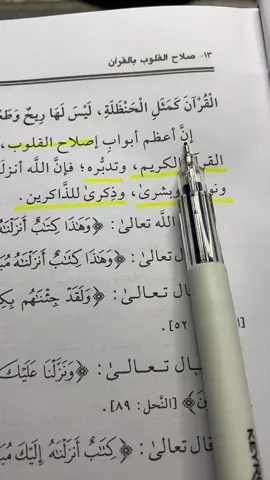 ١٣- صلاح القلوب بالقرآن
الْقُرْآنَ كَمَثَلِ الْحَنْظَلَةِ، لَيْسَ لَهَا رِيحٌ
إنَّ أعظم أبوابِ إصلاحِ القلوبِ،
الكريم، وتدبُّره؛ فإنَّ الله
وبشرىً، وذِكرىً للذَّاكرين.
الله تعالىٰ: ﴿وَهَٰذَا كِتَٰبٌ أَنزَلْنَٰهُ
تعالىٰ: ﴿وَهَٰذَا كِتَٰبٌ أَنزَلْنَٰهُ
قال تعالىٰ: ﴿وَلَقَدْ جِئْنَٰهُم
٥٢].
قال تعالىٰ: ﴿وَنَزَّلْنَا عَلَيْكَ
[النَّحل: ٨٩].
قال تعالىٰ: ﴿كِتَٰبٌ أَنزَلْنَٰهُ إِلَيْكَ